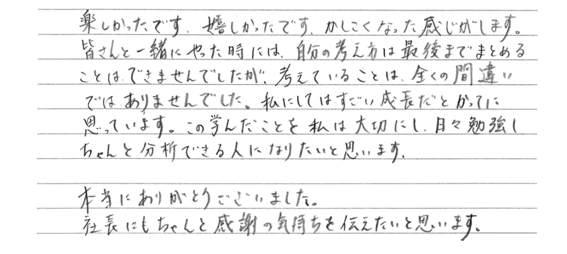 楽しかったです。嬉しかったです。かしこくなった感じがします。
皆さんと一緒にやった時には、自分の考え方は最後までまとめる
ことはできませんでしたが、考えていることは、全くの間違い
ではありませんでした。私にしてはすごい成長だとかってに
思っています。この学んだことを私は大切にし、日々勉強し
ちゃんと分析できる人になりたいと思います。
本当にありがとうございました。
社長にもちゃんと感謝の気持ちを伝えたいと思います。